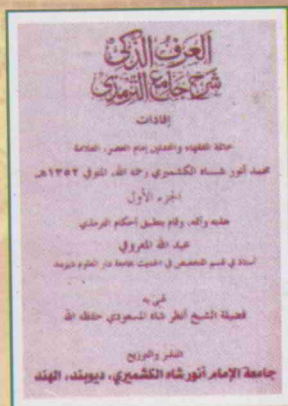 العرف الذكي
شرح جامع الترمذي
إفادات
خاتمة الفقهاء والمحدثين إمام العصر، العلامة
محمد أنور شاه الكشميري رحمه الله، المتوفى ١٣٥٢هـ
الجزء الأول
حققه وأتمه، وقام بتطبيق أحكام الترمذي
عبد الله المعروفي
أستاذ في قسم التخصص في الحديث بجامعة دار العلوم ديوبند
عني به
فضيلة الشيخ أنظر شاه المسعودي حفظه الله
النشر والتوزيع
جامعة الإمام أنور شاه الكشميري، ديوبند، الهند